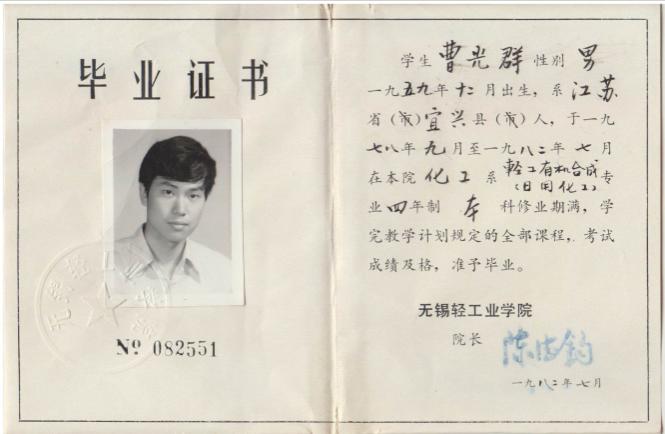 毕业证书
№ 082551
学生 曹光群 性别 男
一九五九年十二月出生，系 江苏
省（市）宜兴县（市）人，于一九
七八年九月至一九八二年七月
在本院 化工 系 轻工有机合成（日用化工）专
业四年制 本 科修业期满，学
完教学计划规定的全部课程，考试
成绩及格，准予毕业。
无锡轻工业学院
院长
一九八二年七月